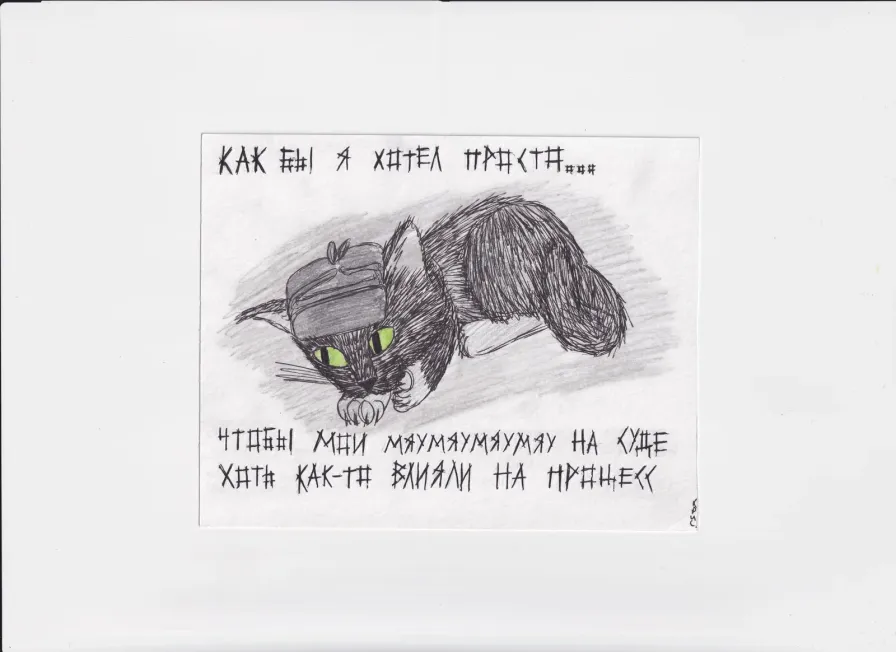 КАК БЫ Я ХОТЕЛ ПРОСТО...
ЧТОБЫ МОИ МЯУМЯУМЯУМЯУ НА СУДЕ
ХОТЬ КАК-ТО ВЛИЯЛИ НА ПРОЦЕСС